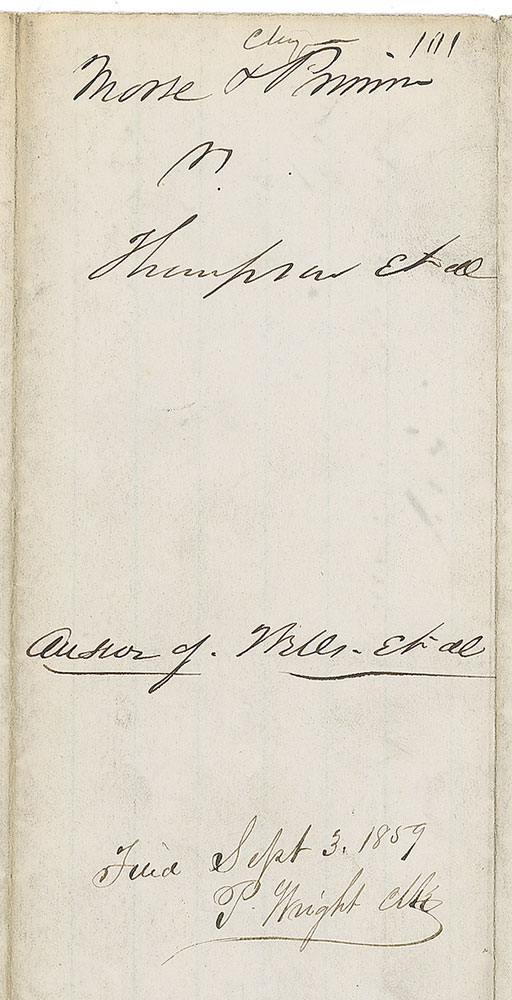 Chy 101
Morse & Primm
vs.
Thompson et al
Answer of. Wells. et al
Filed Sept 3. 1859
P. Wright Clk